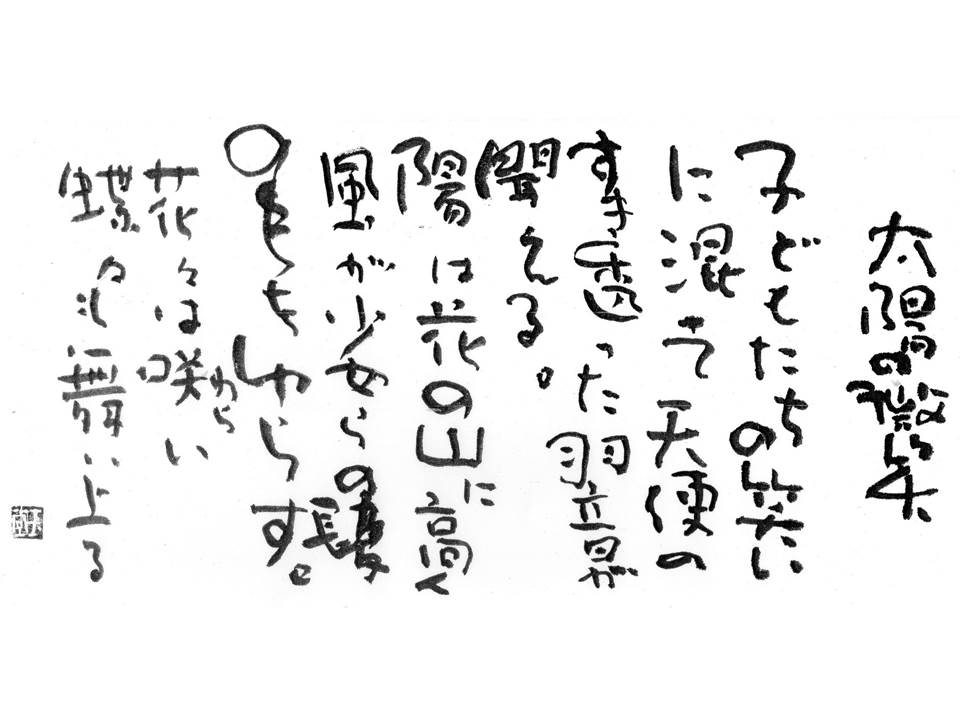 太陽の微笑
子どもたちの笑い
に混って天使の
すき透った羽音が
聞える。
陽は花の山に高く
風が少女らの髪
をもしゃらす。
花々は咲い
わら
蝶々は舞い上る